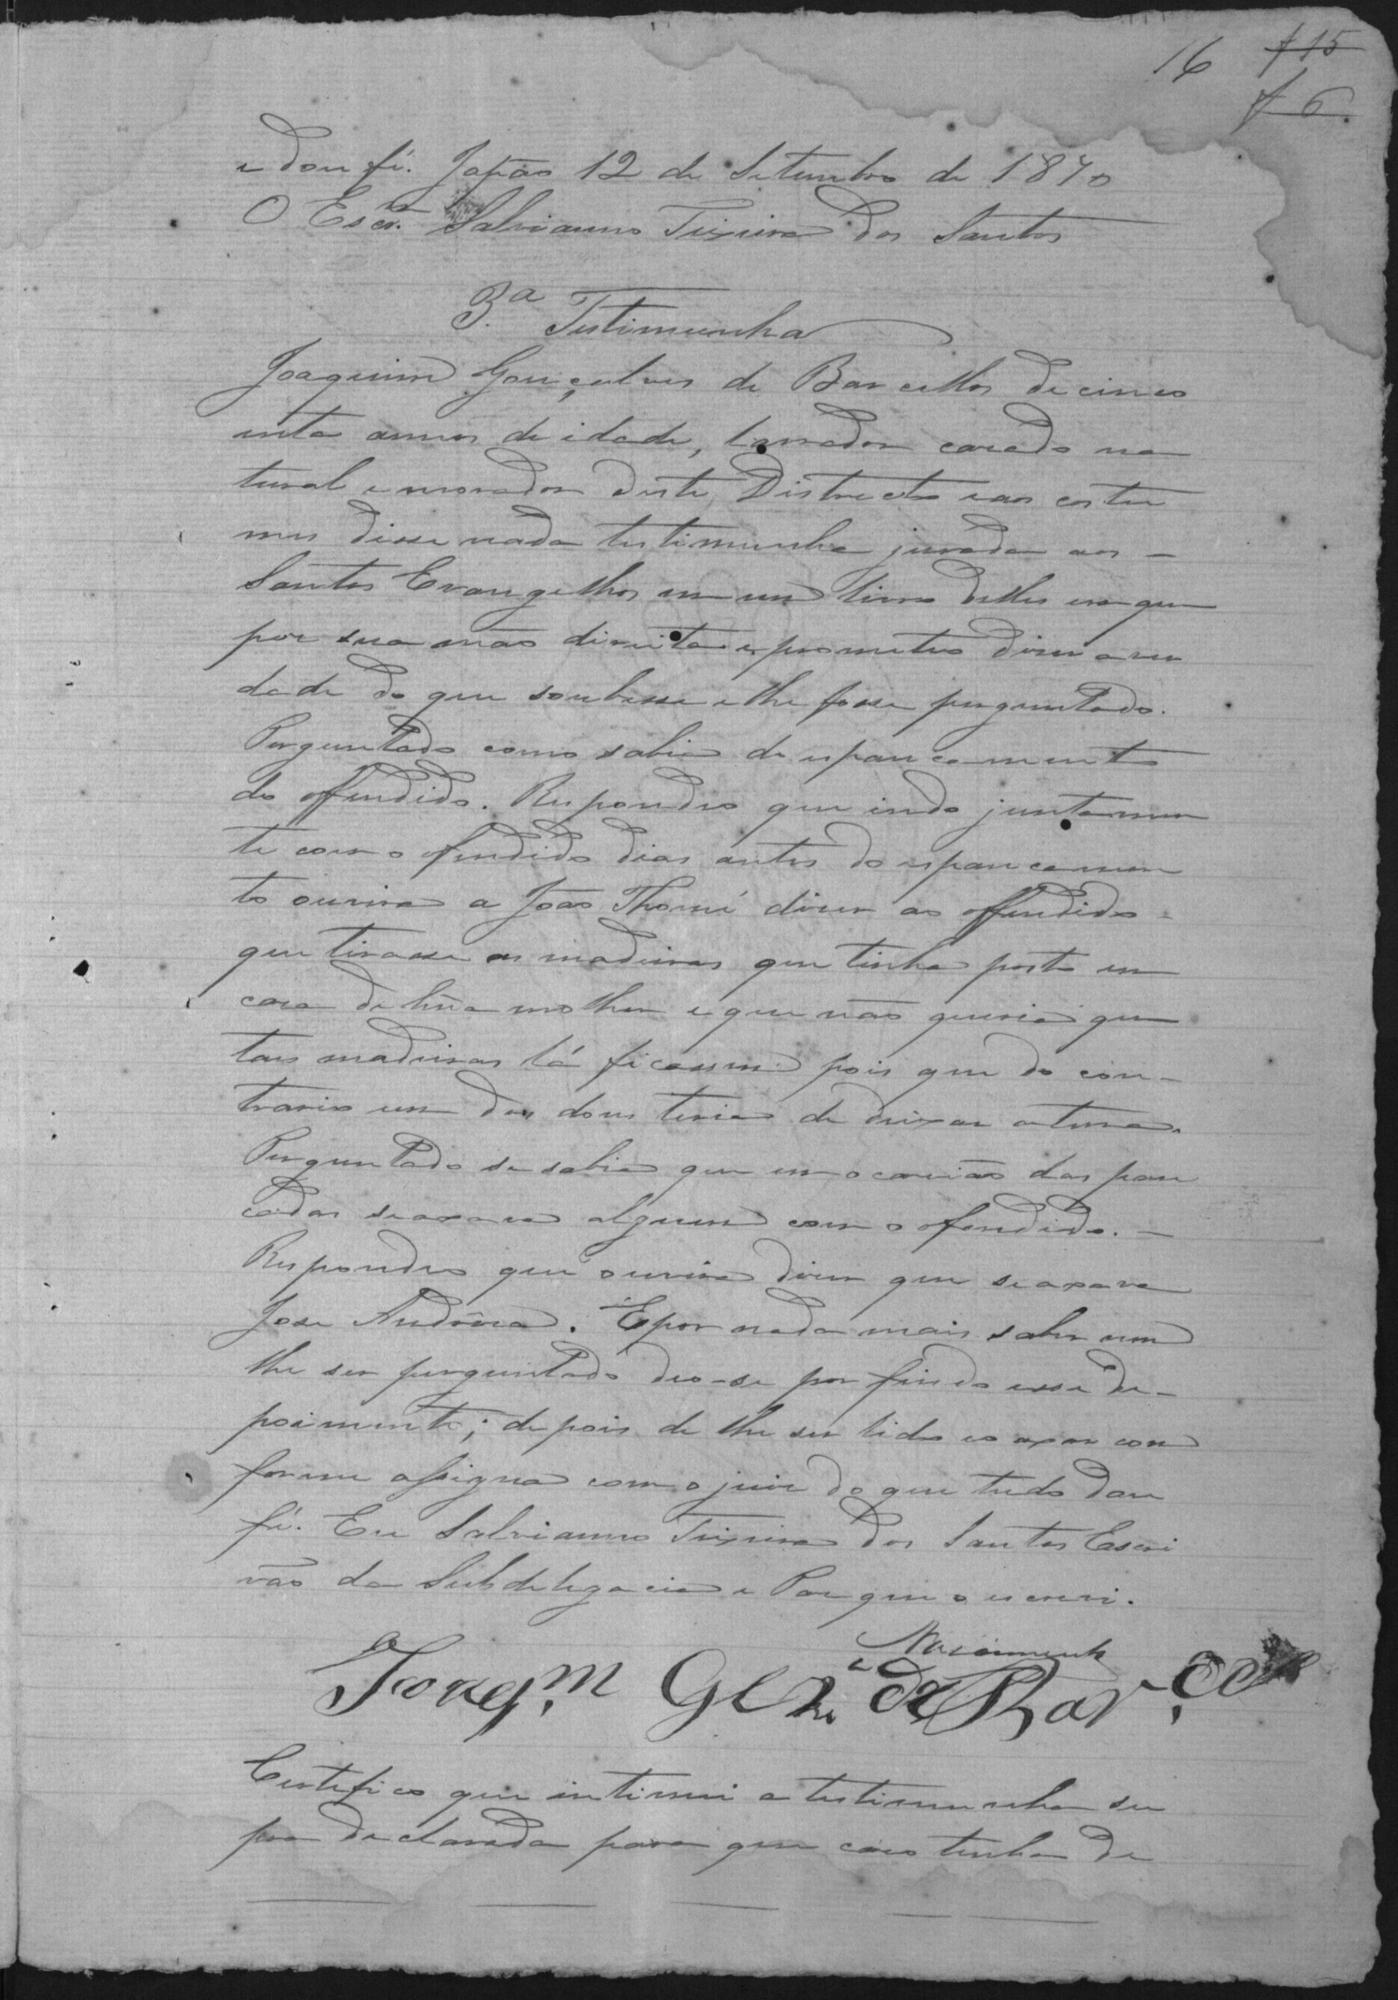 16 f 15
f 6
e dou fé. Japão 12 de Setembro de 1870
O Escr.am Salvianno Teixeira dos Santos
3.a Testimunha
Joaquim Gonçalves de Barcellos de cinco
enta annos de idade, lavrador casado na
tural e morador deste Districto e aos costu
mes disse nada testimunha jurada aos –
Santos Evangelhos em um livro delles em que
pos sua mão direita e prometeo diser a ver
dade do que soubesse e lhe fosse perguntado.
Perguntado como sabia do espancamento
do offendido. Respondeo que indo juntamen
te com o ofendido dias antes do espancamen
to ouvira a João Thomé diser ao offendido –
que tirasse as madeiras que tinha posto em
casa de hũa molher e que não queria que
tais madeiras lá ficassem pois que do con–
trario um dos dous teria de deixar a terra.
Perguntado se sabia que em ocasião das pan
cadas se axava alguem com o ofendido. –
Respondeo que ouvira diser que se axava
Jose Andôrra. E por nada mais saber nem
lhe ser perguntado deo-se por findo esse de–
poimento; depois de lhe ser lido e o axar con
forme assigna com o juiz do que tudo dou
fé. Eu Salvianno Teixeira dos Santos Escri
vão da Subdelegacia e Paz que o escrevi.
Nascimento
Joaq.m Glz. de Bar.cellos
Certifico que intimei a testimunha su
pra declarada para que caso tenha de